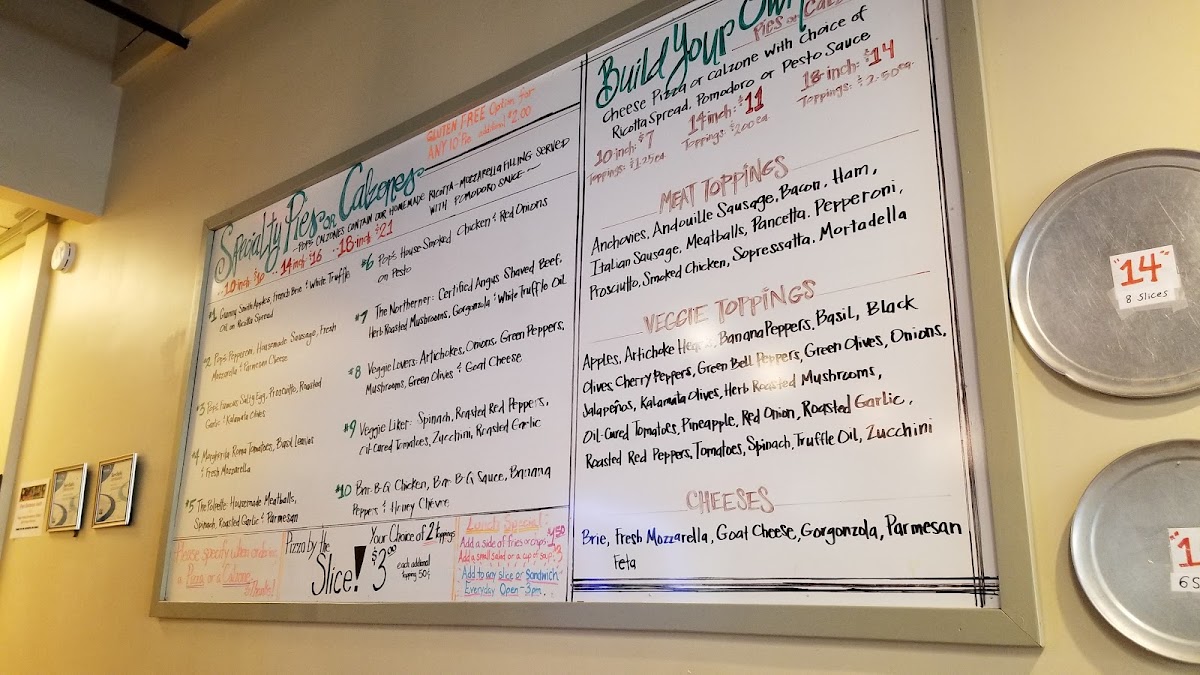 GLUTEN FREE Option for
ANY 10" Pie additional $2.00
Specialty Pies or Calzones
-POPS CALZONES CONTAIN OUR HOMEMADE RICOTTA-MOZZARELLA FILLING SERVED
WITH POMODORO SAUCE-
10-inch $10 14-inch $16 18-inch $21
#1 Granny Smith Apples, French Brie & White Truffle
Oil on Ricotta Spread
#2 Pops Pepperoni, Housemade Sausage, Fresh
Mozzarella & Parmesan Cheese
#3 Pops Famous Salty Egg, Prosciutto, Roasted
Garlic & Kalamata Olives
#4 Margherita: Roma Tomatoes, Basil Leaves
& Fresh Mozzarella
#5 The Polpette: Housemade Meatballs,
Spinach, Roasted Garlic & Parmesan
#6 Pops House-Smoked Chicken & Red Onions
on Pesto
#7 The Northerner: Certified Angus Shaved Beef,
Herb Roasted Mushrooms, Gorgonzola & White Truffle Oil
#8 Veggie Lovers: Artichokes, Onions, Green Peppers,
Mushrooms, Green Olives & Goat Cheese
#9 Veggie Liker: Spinach, Roasted Red Peppers,
Oil-Cured Tomatoes, Zucchini, Roasted Garlic
#10 Bar-B-Q Chicken, Bar-B-Q Sauce, Banana
Peppers & Honey Chèvre
Please specify when ordering
a Pizza or a Calzone
Pizza by the
Slice!
Your Choice of 2 toppings
$3.00
each additional
topping 50¢
Lunch Special
Add a side of fries or chips
Add a small salad or a cup of soup $3
Add to any slice or Sandwich
Everyday Open-3pm.
Build Your Own
Pies or Calz
Cheese Pizza or Calzone with Choice of
Ricotta Spread, Pomodoro or Pesto Sauce
10-inch: $7 14-inch: $11 18-inch: $14
Toppings: $1.25 ea. Toppings: $2.00 ea. Toppings: $2.50 ea.
MEAT TOPPINGS
Anchovies, Andouille Sausage, Bacon, Ham,
Italian Sausage, Meatballs, Pancetta, Pepperoni,
Prosciutto, Smoked Chicken, Sopressatta, Mortadella
VEGGIE TOPPINGS
Apples, Artichoke Hearts, Banana Peppers, Basil, Black
Olives, Cherry Peppers, Green Bell Peppers, Green Olives, Onions,
Jalapeños, Kalamata Olives, Herb Roasted Mushrooms,
Oil-Cured Tomatoes, Pineapple, Red Onion, Roasted Garlic,
Roasted Red Peppers, Tomatoes, Spinach, Truffle Oil, Zucchini
CHEESES
Brie, Fresh Mozzarella, Goat Cheese, Gorgonzola, Parmesan
Feta
"14"
8 Slices